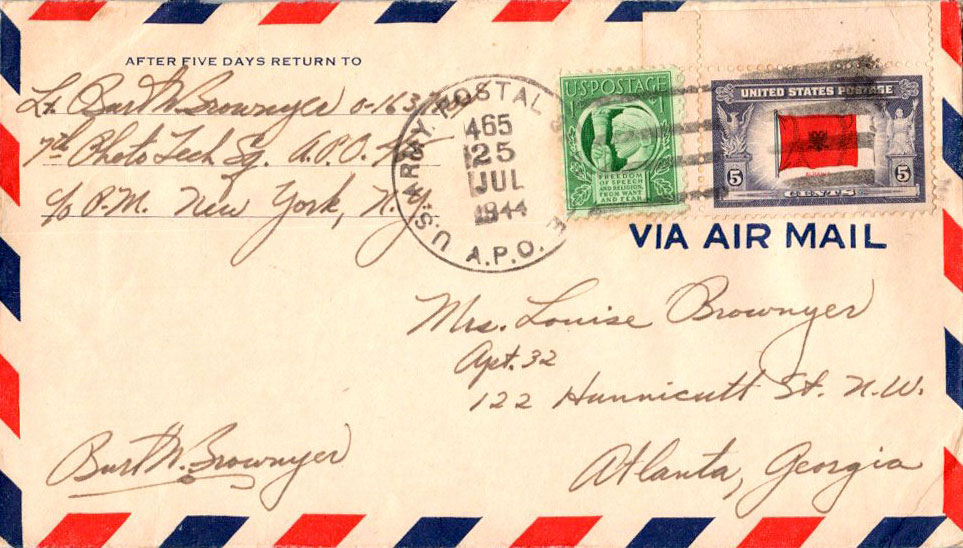 AFTER FIVE DAYS RETURN TO
Lt. Burt W. Brownyer O-1637
7th Photo Tech Sq. A.P.O.
c/o P.M. New York, N.Y.
U.S. ARMY POSTAL
A.P.O.
465
25
JUL
1944
U.S. POSTAGE
FREEDOM
OF SPEECH
AND RELIGION,
FROM WANT
AND FEAR
UNITED STATES POSTAGE
5 5
CENTS
VIA AIR MAIL
Mrs. Louise Brownyer
Apt. 32
122 Hunnicutt St. N.W.
Atlanta, Georgia
Burt W. Brownyer